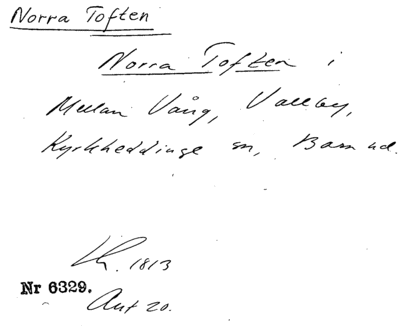 Norra Toften
Norra Toften i
Mellan Vång, Vallby,
Kyrkheddinge sn, Bara hd.
Lk. 1813
Nr 6329.
Ant 20.